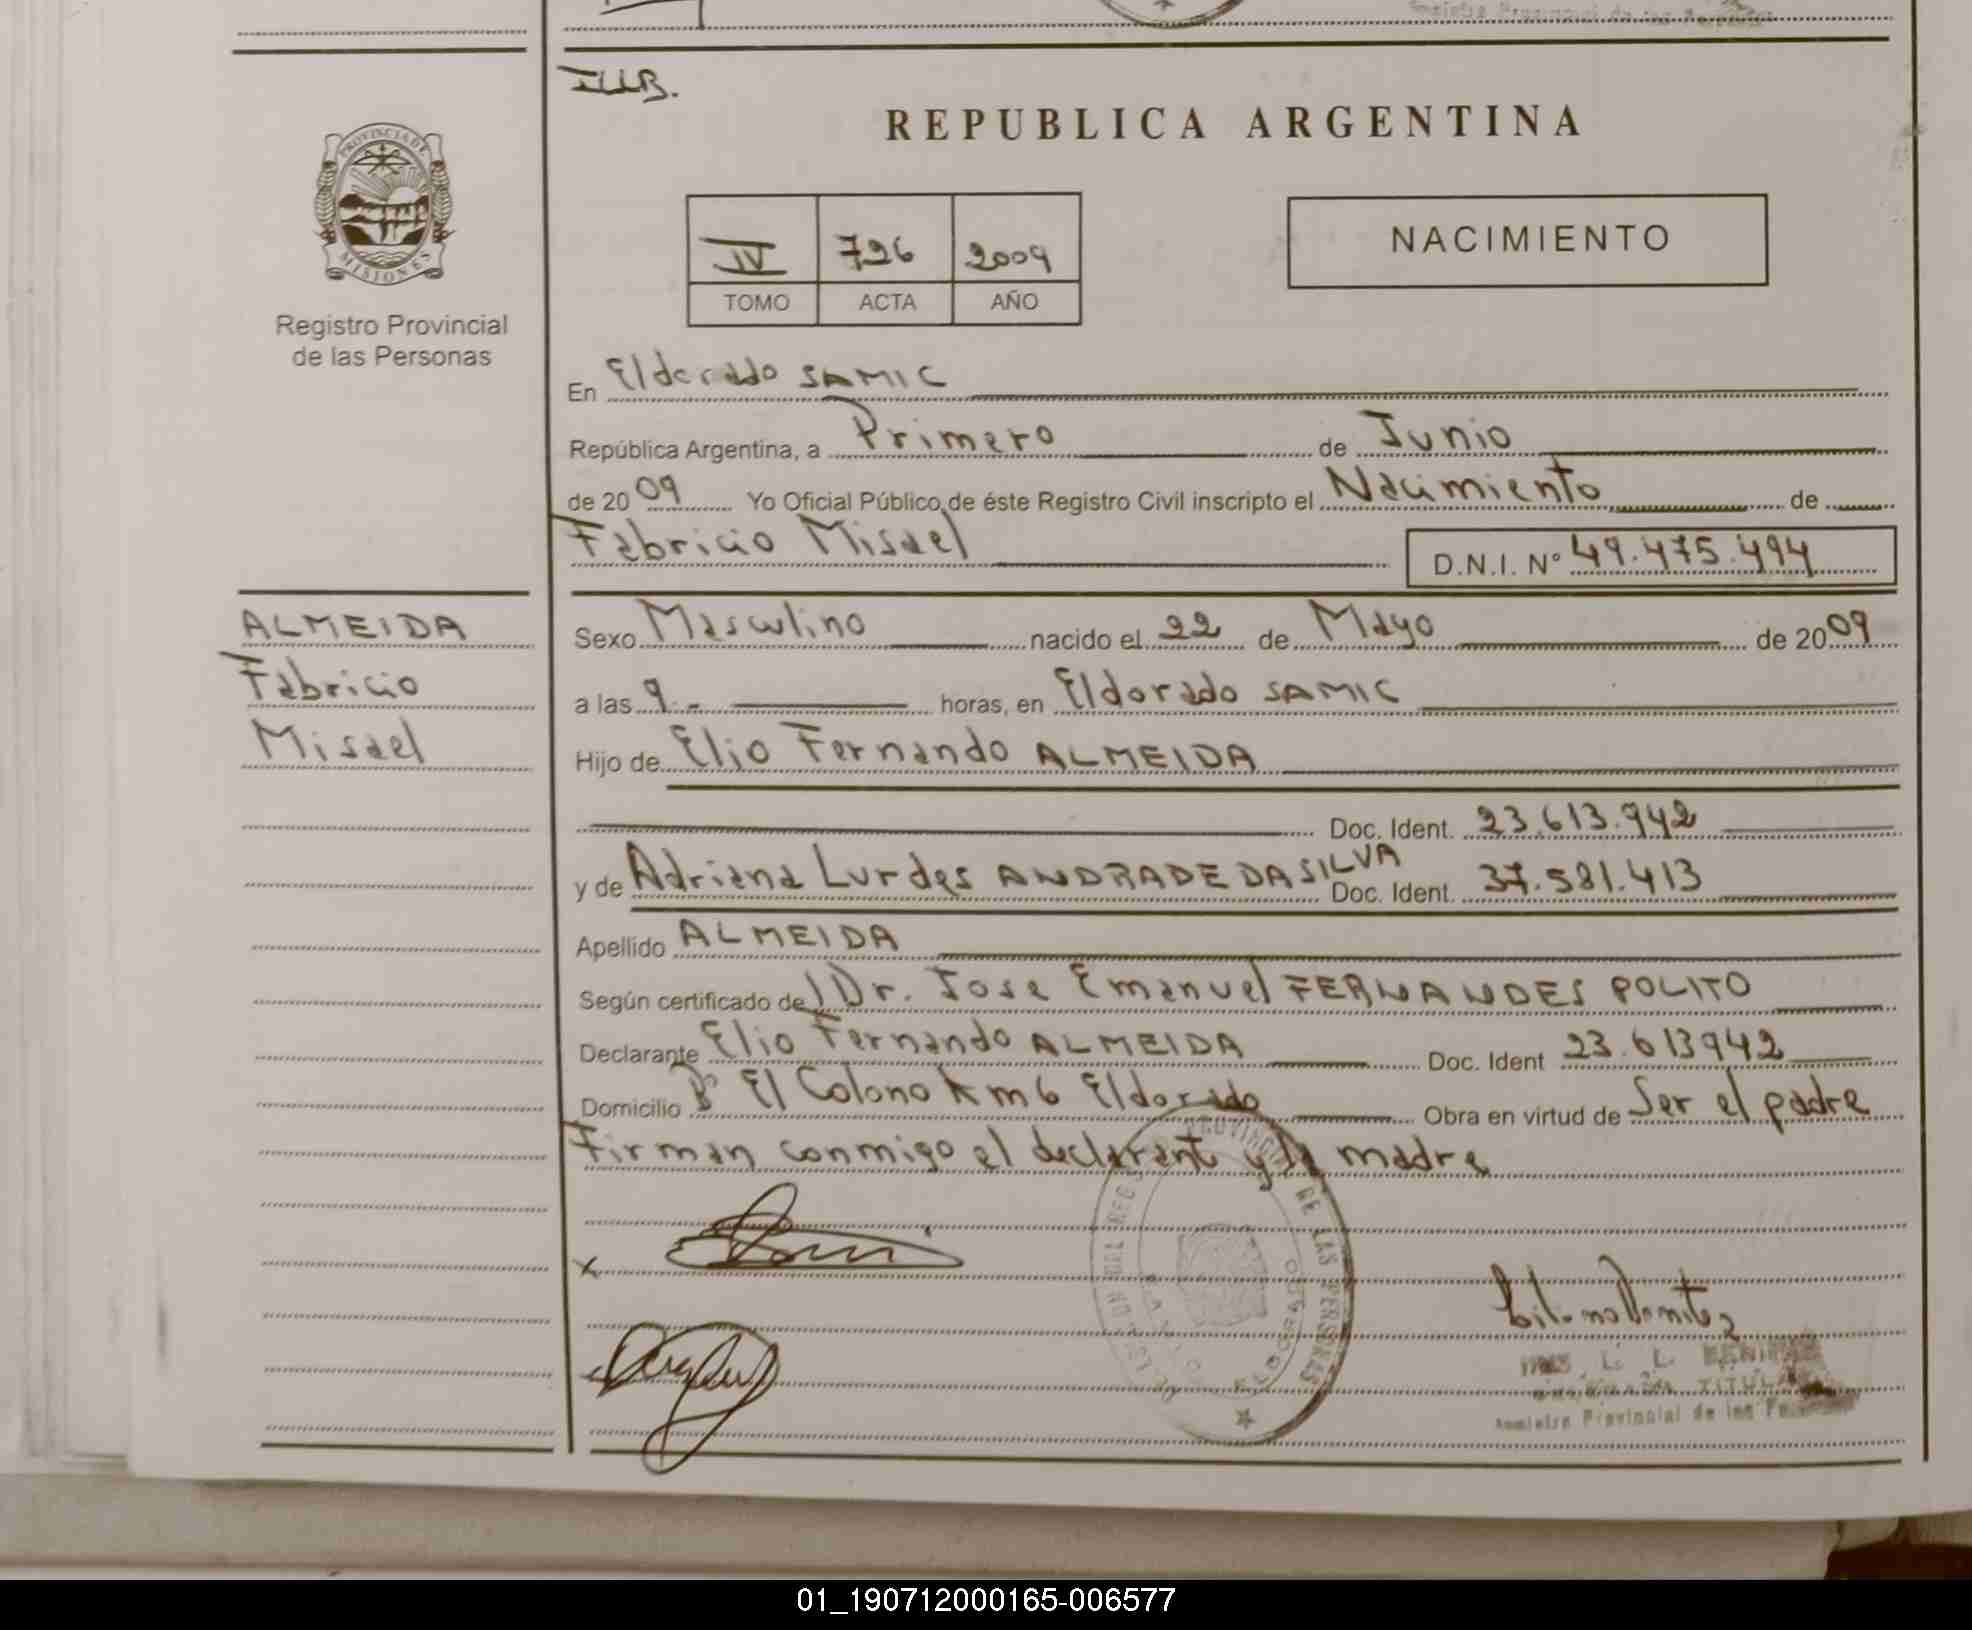 REPUBLICA ARGENTINA
PROVINCIA DE
MISIONES
Registro Provincial
de las Personas
IV 726 2009
TOMO ACTA AÑO
NACIMIENTO
En Eldorado SAMIC
República Argentina, a Primero de Junio
de 2009 Yo Oficial Público de éste Registro Civil inscripto el Nacimiento de
Fabricio Misael D.N.I. Nº 49.475.494
ALMEIDA
Fabricio
Misael
Sexo Masculino nacido el 22 de Mayo de 2009
a las 9.- horas, en Eldorado SAMIC
Hijo de Elio Fernando ALMEIDA
Doc. Ident. 23.613.942
y de Adriana Lurdes ANDRADE DASILVA Doc. Ident. 37.581.413
Apellido ALMEIDA
Según certificado de Dr. Jose Emanuel FERNANDES POLITO
Declarante Elio Fernando ALMEIDA Doc. Ident 23.613942
Domicilio Bº El Colono Km 6 Eldorado Obra en virtud de Ser el padre
Firman conmigo el declarant y la madre
DE LAS PERSONAS
ELDORADO
L. L.
Provincial de las
01_190712000165-006577